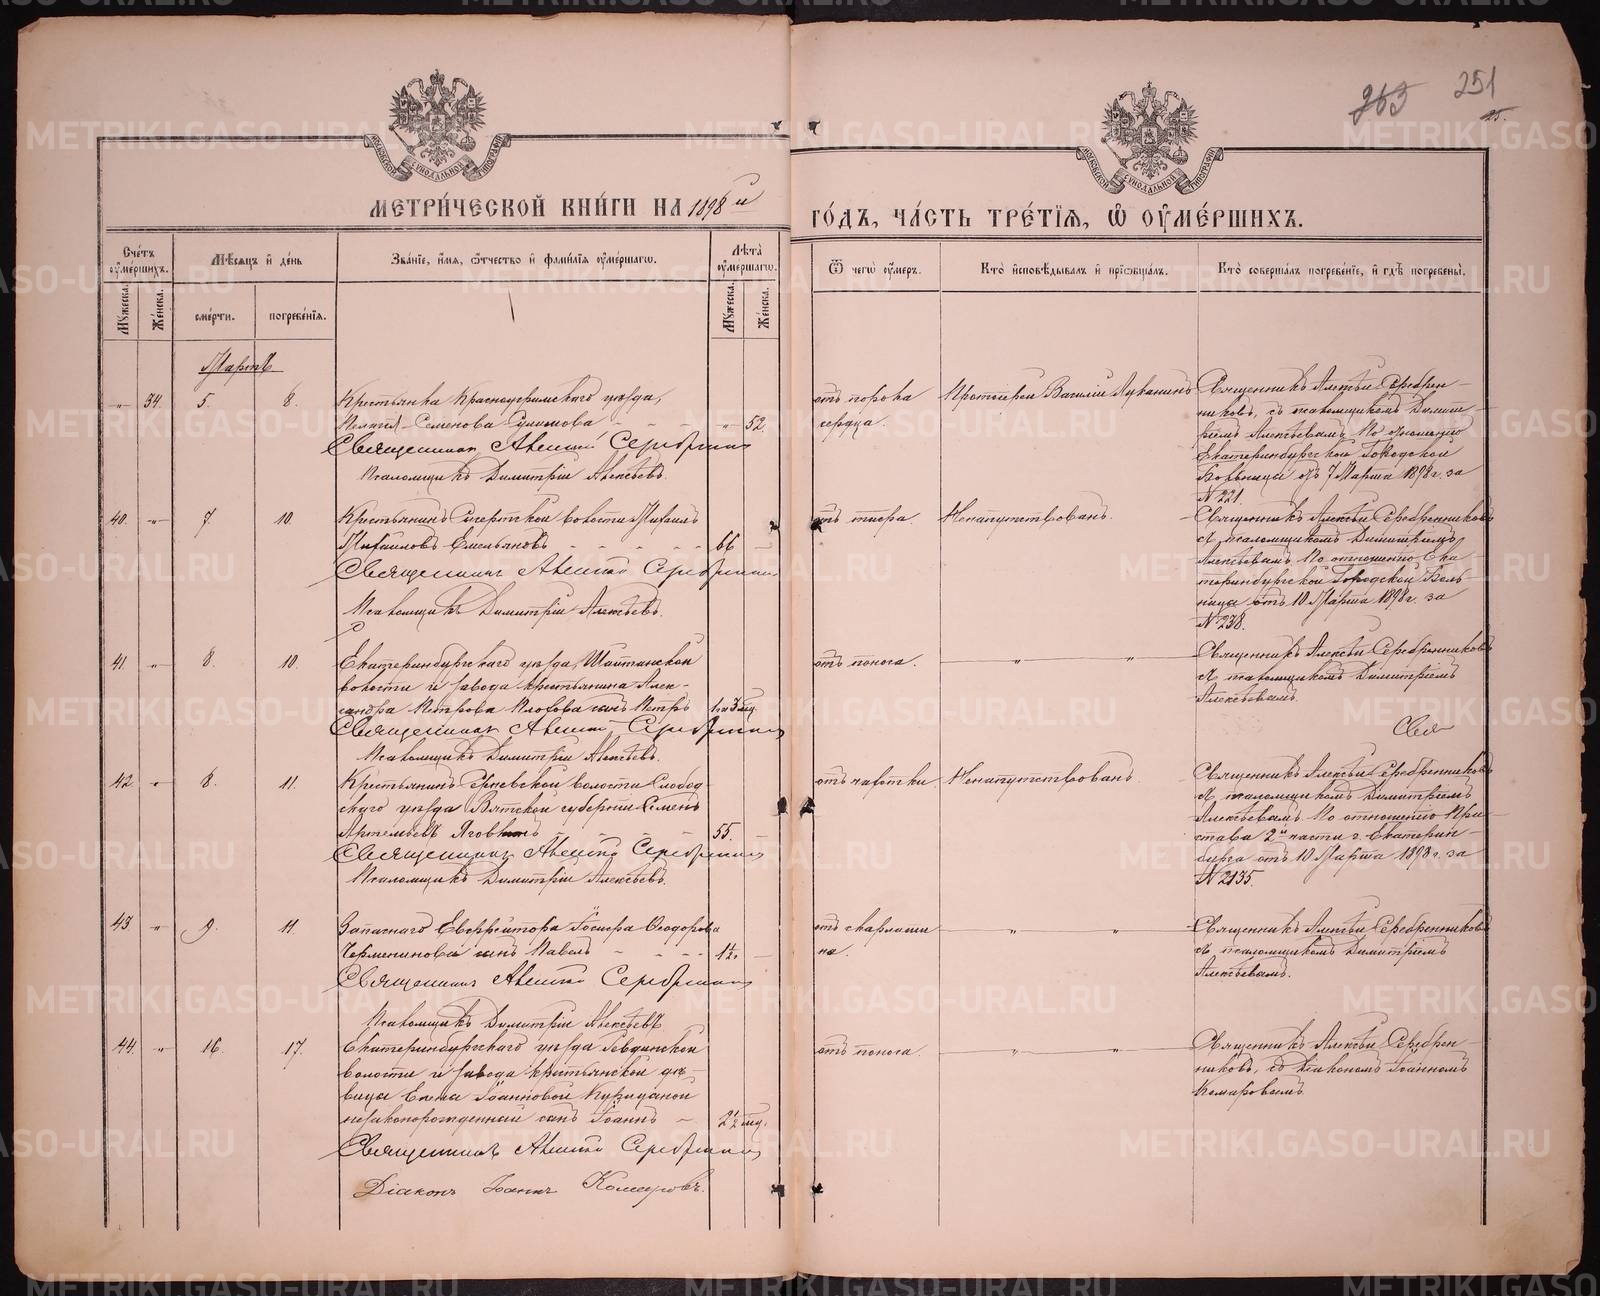 263 251
25.
МОСКОВСКОЙ СѴНОДАЛЬНОЙ ТИПОГРАФІИ
МОСКОВСКОЙ СѴНОДАЛЬНОЙ ТИПОГРАФІИ
МЕТРИ́ЧЕСКОЙ КНИ́ГИ НА 1898 й
ГО́ДЪ, ЧА́СТЬ ТРЕ́ТІѦ, Ѡ ОУ҆МЕ́РШИХЪ.
Сче́тъ оу҆ме́ршихъ.
Мѣ́сѧцъ и҆ де́нь
Зва́нїе, и҆́мѧ, ѻ҆́тчество и҆ фами́лїѧ оу҆ме́ршагѡ.
Лѣ́та оу҆ме́ршагѡ.
Ѿ чегѡ̀ оу҆́меръ.
Кто̀ и҆сповѣ́дывалъ и҆ прїѡбща́лъ.
Кто̀ соверша́лъ погребе́нїе, и҆ гдѣ̀ погребены̀.
Мꙋ́жеска.
Же́нска.
сме́рти.
погребе́нїѧ.
Мꙋ́жеска.
Же́нска.
Мартъ
" 34. 5. 8. Крестьянка Красноуфимскаго уѣзда,
Семенова Сулимова " 52.
Священникъ Алексій Серебренник
Псаломщикъ Димитрій Алексѣевъ.
отъ порока
сердца.
Протоіерей Василій Луканинъ
Священникъ Алексѣй Серебрен-
никовъ, съ псаломщикомъ Димит-
ріемъ Алексѣевымъ. По отношенію
Екатеринбургской Городской
Больницы отъ 7 Марта 1898 г. за
№ 221.
40. " 7. 10. Крестьянинъ Сысертской волости Михаилъ
Михаиловъ Емельяновъ 66
Священникъ Алексій Серебренник
Псаломщикъ Димитрій Алексѣевъ.
отъ тифа.
Ненапутствованъ.
Священникъ Алексѣй Серебренниковъ
съ псаломщикомъ Димитріемъ
Алексѣевымъ. По отношенію Ека
теринбургской Городской Боль-
ницы отъ 10 Марта 1898 г. за
№ 238.
41. " 8. 10. Екатеринбургскаго уѣзда, Шайтанской
волости и завода крестьянина Алек-
сандра Петрова сынъ Петръ 1 г. 3 мц.
Священникъ Алексій Серебренник
Псаломщикъ Димитрій Алексѣевъ.
отъ поноса. " "
Священникъ Алексѣй Серебренниковъ
съ псаломщикомъ Димитріемъ
Алексѣевымъ.
Свя
42. " 8. 11. Крестьянинъ волости Слобод
скаго уѣзда Вятской губерніи Семенъ
Артемьевъ 55.
Священникъ Алексій Серебренник
Псаломщикъ Димитрій Алексѣевъ.
отъ чахотки.
Ненапутствованъ.
Священникъ Алексѣй Серебренниковъ
съ псаломщикомъ Димитріемъ
Алексѣевымъ. По отношенію При
става 2й части г. Екатерин-
бурга отъ 10 Марта 1898 г. за
№ 2135.
43. " 9. 11. Запаснаго Ефрейтора Іосифа Ѳеодорова
сынъ Павелъ 1½.
Священникъ Алексій Серебренник
Псаломщикъ Димитрій Алексѣевъ
отъ скарлати
на. " "
Священникъ Алексѣй Серебренниковъ
съ псаломщикомъ Димитріемъ
Алексѣевымъ.
44. " 16. 17. Екатеринбургскаго уѣзда Ревдинской
волости и завода крестьянской дѣ-
вицы Елены Іоанновой
незаконорожденный сынъ Іоаннъ 2½ мц.
Священникъ Алексій Серебренник
Діаконъ Іоаннъ Комаровъ.
отъ поноса. " "
Священникъ Алексѣй Серебрен-
никовъ, съ діакономъ Іоанномъ
Комаровымъ.
METRIKI.GASO-URAL.RU